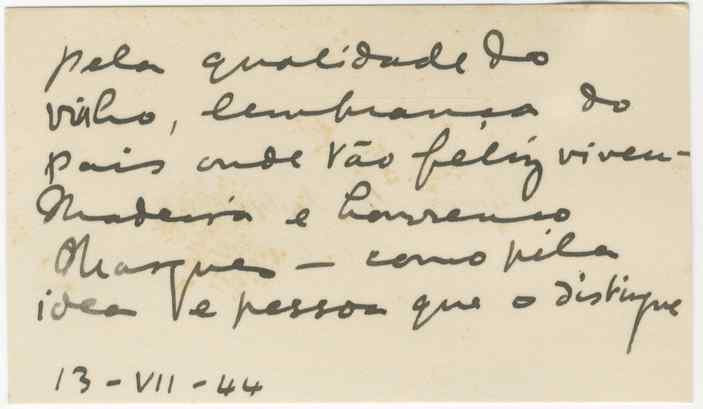 pela qualidade do
vinho, lembrança do
pais onde tão feliz viveu -
Madeira e Lourenço
Marques - como pela
idea e pessoa que o distingue
13 - VII - 44